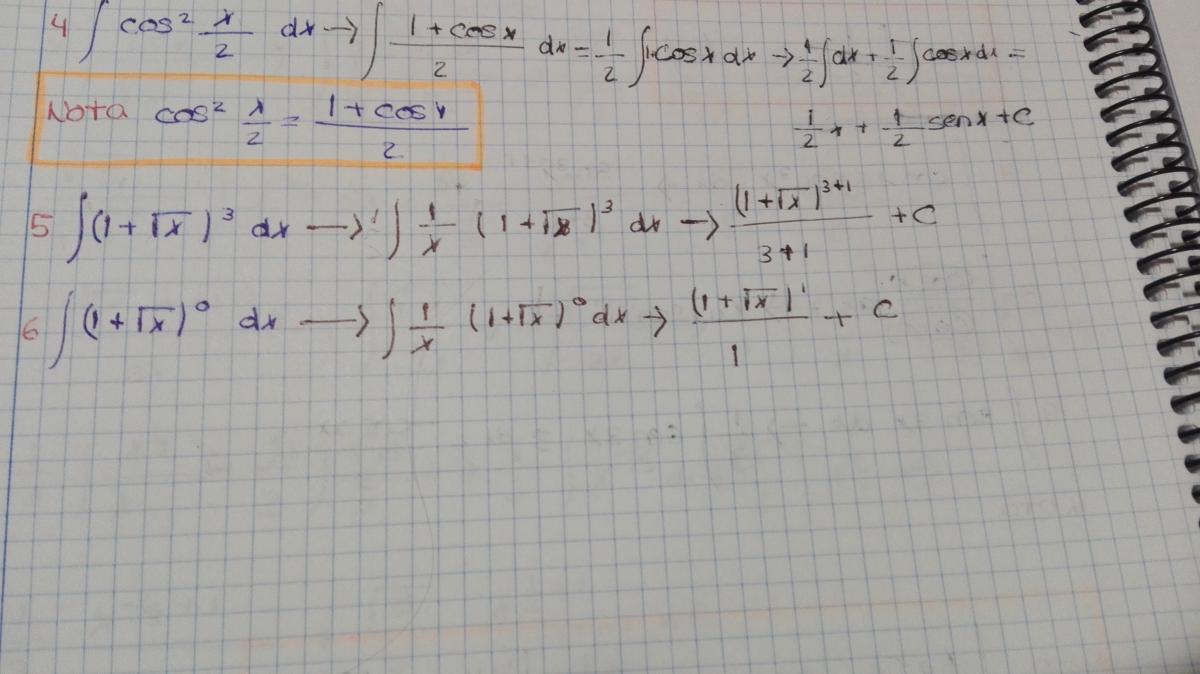 4 ∫ cos² x/2 dx → ∫ (1 + cos x)/2 dx = 1/2 ∫ 1+cos x dx → 1/2 ∫ dx + 1/2 ∫ cos x dx =
Nota cos² x/2 = (1 + cos x)/2
1/2 x + 1/2 sen x + C
5 ∫ (1 + √x)³ dx → ∫ 1/x (1 + √x)³ dx → (1 + √x)³⁺¹/(3+1) + C
6 ∫ (1 + √x)⁰ dx → ∫ 1/x (1 + √x)⁰ dx → (1 + √x)¹/1 + C